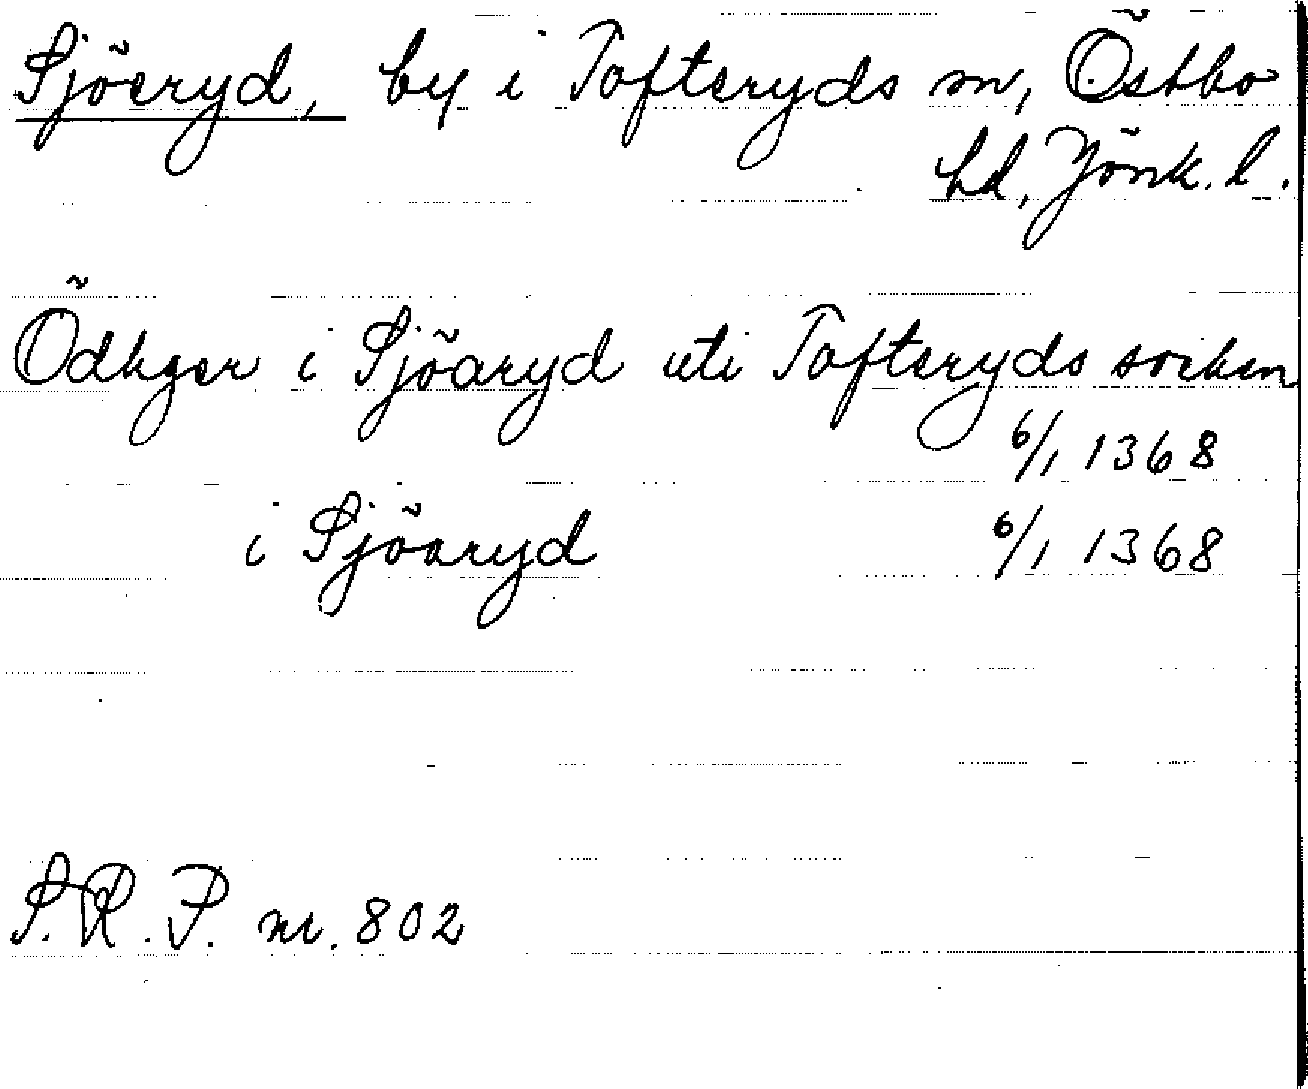 Sjöeryd, by i Tofteryds sn, Östbo
hd, Jönk. l.
Ödhger i Sjöaryd uti Tofteryds soiken
6/1 1368
i Sjöaryd 6/1 1368
S.R.P. nr. 802